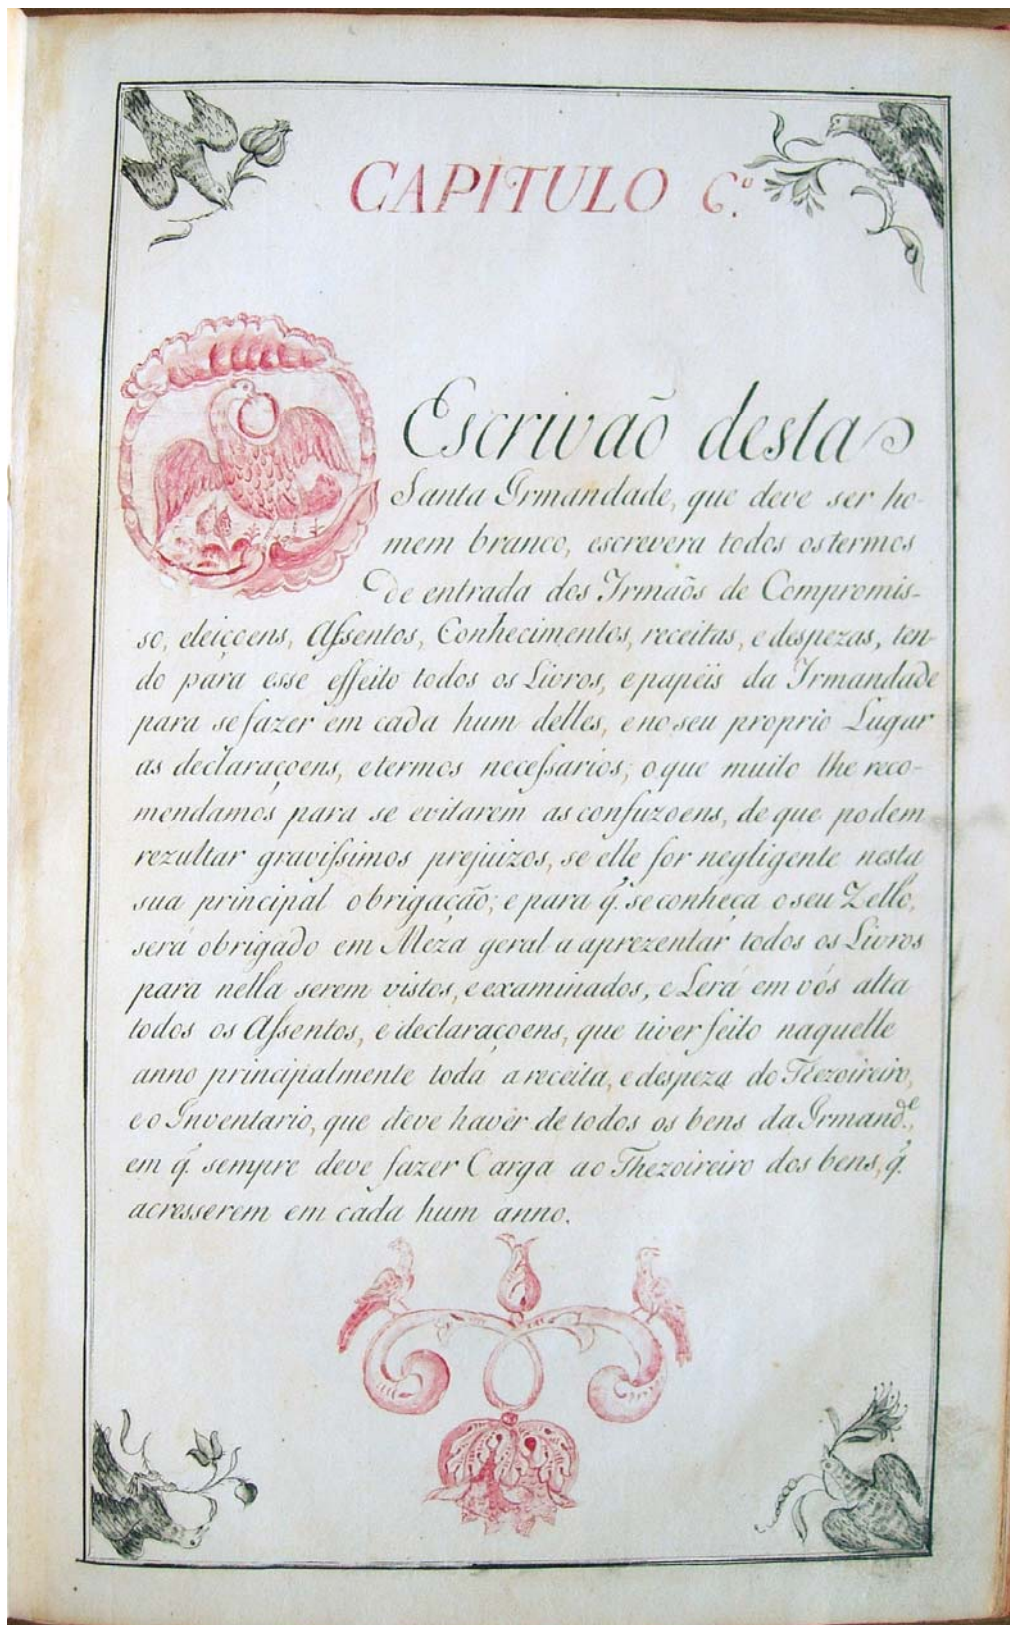 CAPITULO 6º.
O Escrivaõ desta
Santa Irmandade, que deve ser ho-
mem branco, escrevera todos os termos
de entrada dos Irmaõs de Compromis-
so, eleiçoens, Assentos, Conhecimentos, receitas, e despezas, ten-
do para esse effeito todos os Livros, e papeis da Irmandade
para se fazer em cada hum delles, e no seu proprio Lugar
as declaraçoens, e termos necessarios; o que muito lhe reco-
mendamos para se evitarem as confuzoens, de que podem
rezultar gravissimos prejuizos, se elle for negligente nesta
sua principal obrigação; e para q̃. se conheça o seu Zello,
será obrigado em Meza geral a aprezentar todos os Livros
para nella serem vistos, e examinados, e Lerá em vós alta
todos os Assentos, e declaraçoens, que tiver feito naquelle
anno principalmente toda a receita, e despeza do Thezoireiro,
e o Inventario, que deve haver de todos os bens da Irmandᵈᵉ.,
em q̃. sempre deve fazer Carga ao Thezoireiro dos bens, q̃.
acresserem em cada hum anno.